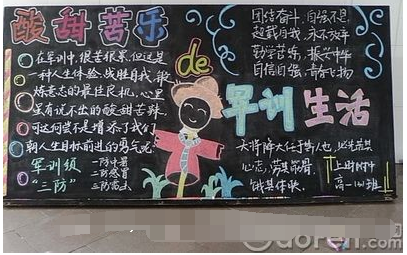 酸甜苦乐
在军训中,很苦很累,但这是
一种人生体验,战胜自我,锻
炼意志的最佳良机,心里
虽有说不出的酸甜苦辣,
可这何尝不是增添了我们
朝人生目标前进的勇气呢?
军训须
“三防”
一防中暑
二防感冒
三防
de
军训生活
团结奋斗,自强不息,
超越自我,永不放弃
勤学苦乐,振兴中华
自信自强,青春飞扬
天将降大任于斯人也,必先苦其
心志,劳其筋骨,
饿其体肤。
上时
高一 班